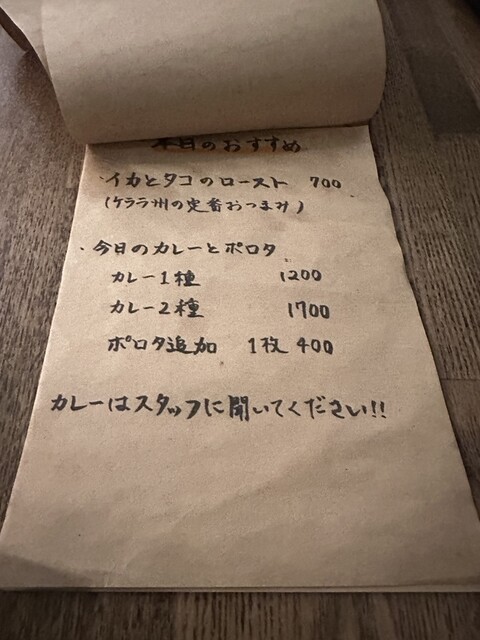 本日のおすすめ
・イカとタコのロースト 700
(ケララ州の定番おつまみ)
・今日のカレーとポロタ
カレー1種 1200
カレー2種 1700
ポロタ追加 1枚 400
カレーはスタッフに聞いてください!!